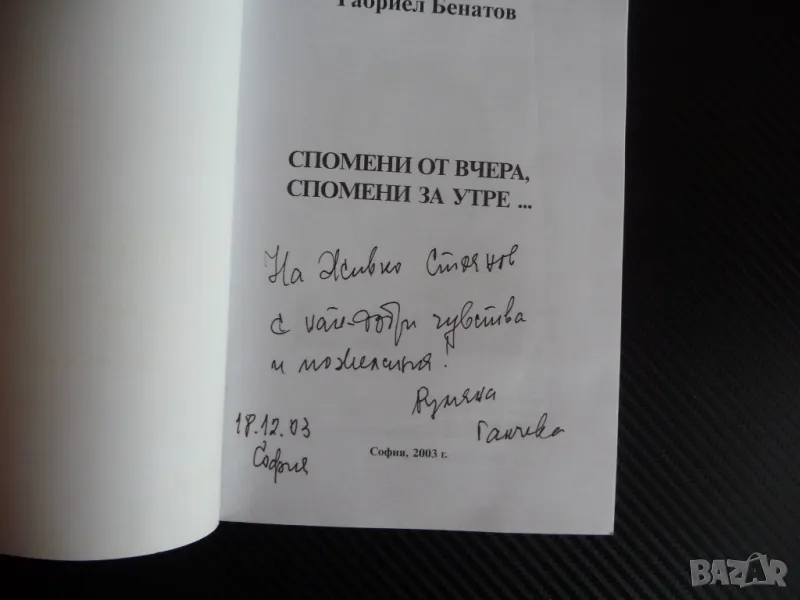 Габриел Бенатов
СПОМЕНИ ОТ ВЧЕРА,
СПОМЕНИ ЗА УТРЕ ...
На Живко Стоянов
с най-добри чувства
и пожелания!
Румяна
Ганчева
18.12.03
София
София, 2003 г.
BAZAR